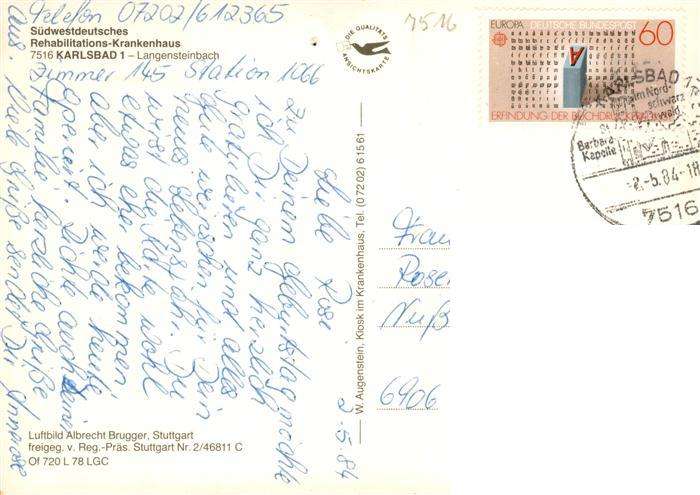 Telefon 07202/612365
Südwestdeutsches
Rehabilitations-Krankenhaus
7516 KARLSBAD 1 – Langensteinbach
Zimmer 145 Station 1266
DIE QUALITÄTS
ANSICHTSKARTE
7516
EUROPA DEUTSCHE BUNDESPOST 60
A
ERFINDUNG DER BUCHDRUCK
KARLSBAD 1
im Nord-
schwarz
wald
Barbara
Kapelle
-2.-5.84-18
7516
2-5.84
Liebe Rosi
Zu Deinem Geburtstag möchte
ich Dir ganz herzlich
gratulieren und alles
Gute wünschen für Dein
neues Lebensjahr. Du
wirst die Karte wohl
etwas eher bekommen
aber ich werde heute
operiert. Dich auch Deine
Familie herzliche Grüße
aus. Viel Grüße sendet Dir Annerose
W. Augenstein, Kiosk im Krankenhaus, Tel. (0 72 02) 6 15 61
Frau
Rose
Nuß
6906
Luftbild Albrecht Brugger, Stuttgart
freigeg. v. Reg.-Präs. Stuttgart Nr. 2/46811 C
Of 720 L 78 LGC